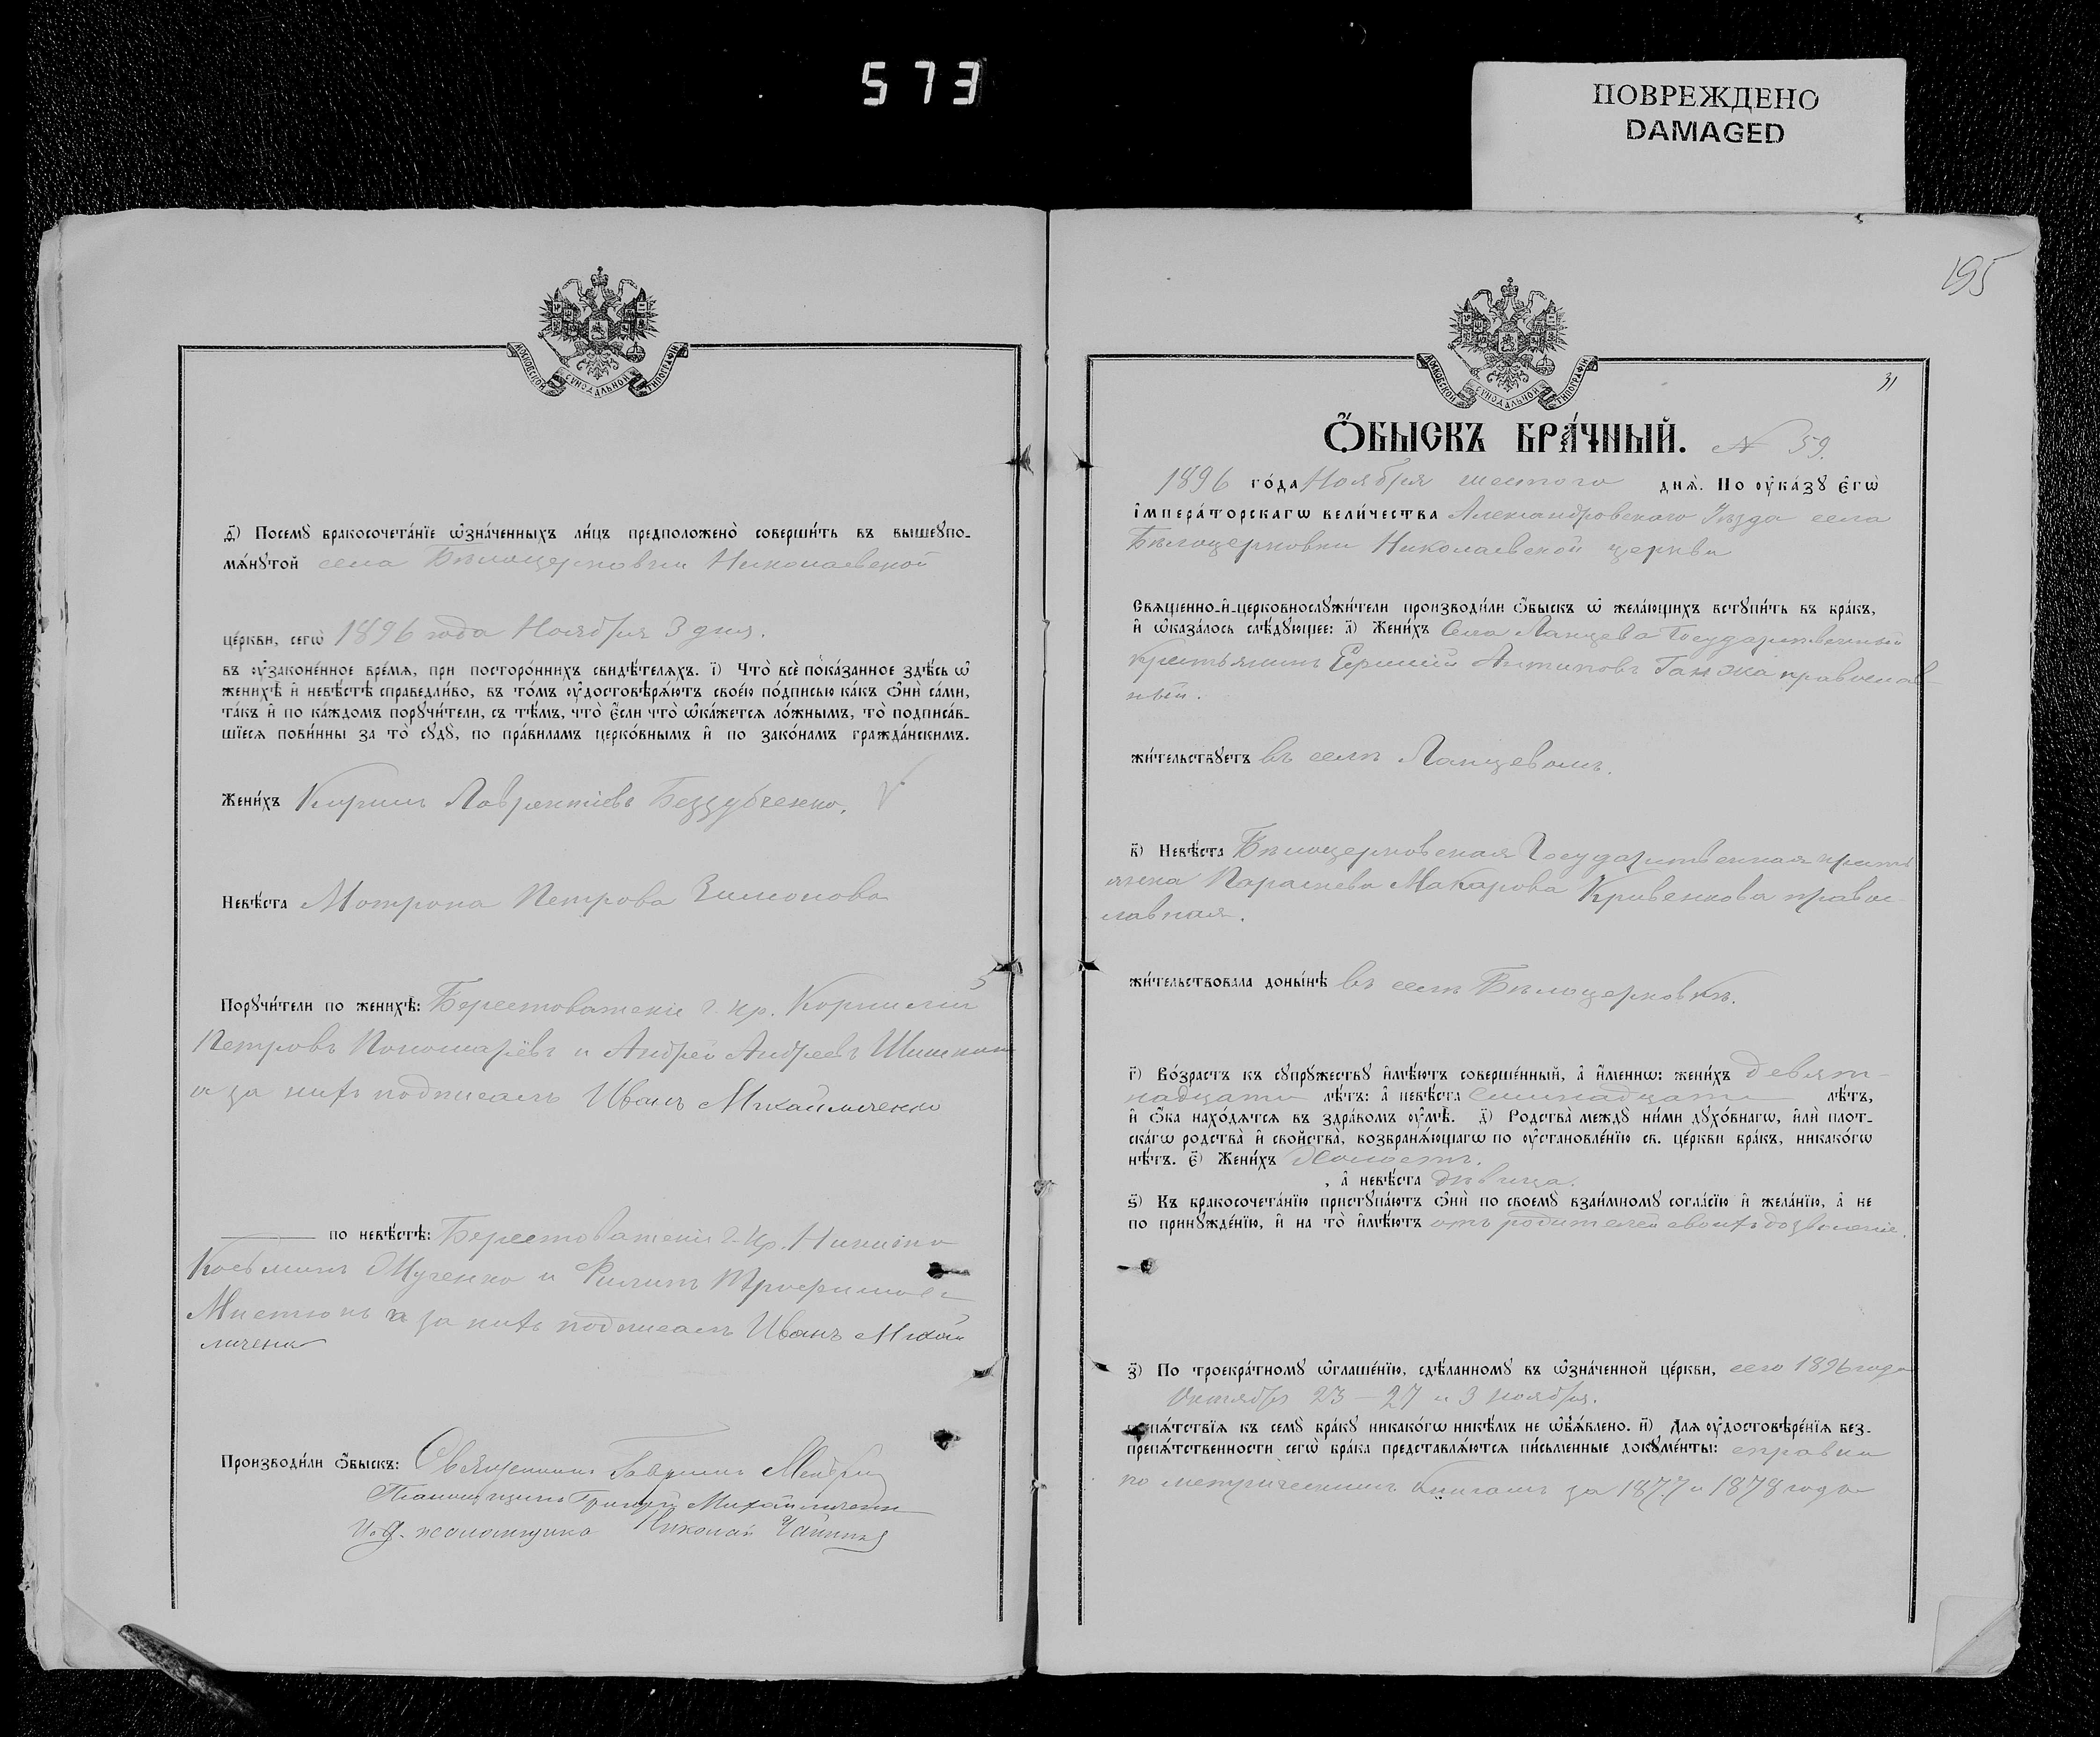 573
ПОВРЕЖДЕНО
DAMAGED
МОСКОВСКОЙ СѴНОДАЛЬНОЙ ТИПОГРАФІИ
д҃) Посемꙋ бракосочета́нїе ѡ҆зна́ченныхъ ли́цъ предположено̀ соверши́ть въ вышеꙋпо-
мѧ́нꙋтой села Бѣлоцерковки Николаевской
це́ркви, сегѡ̀ 1896 года Ноября 3 дня.
въ ᲂу҆законе́нное вре́мѧ, при посторо́ннихъ свидѣ́телѧхъ. і҃) Что̀ всѐ пока́занное здѣ́сь ѡ҆
женихѣ̀ и҆ невѣ́стѣ справедли́во, въ то́мъ ᲂу҆достовѣрѧ́ютъ своею́ по́дписью ка́къ ѻ҆нѝ са́ми,
та́къ и҆ по ка́ждомъ порꙋчи́тели, съ тѣ́мъ, что̀ є҆́сли что̀ ѡ҆ка́жетсѧ ло́жнымъ, то̀ подписа́в-
шїесѧ пови́нны за то̀ сꙋдꙋ̀, по пра́виламъ церко́внымъ и҆ по зако́намъ гражда́нскимъ.
Жени́хъ Кирилъ Лаврентіевъ Беззубченко.
Невѣ́ста Мотрона Петрова Зимонова
Порꙋчи́тели по женихѣ̀: Берестоватскіе г. кр. Корнилій
Петровъ Пономарёвъ и Андрей Андреевъ
а за нихъ подписалъ Иванъ Михайличенко
по невѣ́стѣ: Берестоватскіе г. кр. Никита
Косьминъ Мученко и Филипъ Трофимовъ
а за нихъ подписалъ Иванъ Михай
личенко
Производи́ли ѻ҆́быскъ: Священникъ Гавриилъ
Псаломщикъ Григорій Михайличенко
И. д. псаломщика Николай
195
МОСКОВСКОЙ СѴНОДАЛЬНОЙ ТИПОГРАФІИ
31
Ѻ҆́БЫСКЪ БРА́ЧНЫЙ. № 59.
1896 го́да Ноября шестого днѧ̀. По ᲂу҆ка́зꙋ є҆гѡ̀
і҆мпера́торскагѡ вели́чества Александровского Уѣзда села
Бѣлоцерковки Николаевской церкви
Свѧще́нно-и҆-церковнослꙋжи́тели производи́ли ѻ҆́быскъ ѡ҆ жела́ющихъ встꙋпи́ть въ бра́къ,
и҆ ѡ҆каза́лось слѣ́дꙋющее: а҃) Жени́хъ Села Ланцева Государственный
крестьянинъ Ермій Антиповъ Ганжа православ-
ный.
жи́тельствꙋетъ въ селѣ Ланцевомъ.
в҃) Невѣ́ста Бѣлоцерковская Государственная кресть
янка Параскева Макарова Кривенкова правос-
лавная.
жи́тельствовала доны́нѣ въ селѣ Бѣлоцерковкѣ.
г҃) Во́зрастъ къ сꙋпрꙋ́жествꙋ и҆мѣ́ютъ соверше́нный, а҆ и҆́меннѡ: жени́хъ девят-
надцати лѣ́тъ: а҆ невѣ́ста семнадцати лѣ́тъ,
и҆ ѻ҆́ба нахо́дѧтсѧ въ здра́вомъ ᲂу҆мѣ̀. д҃) Родства̀ междꙋ̀ ни́ми дꙋхо́внагѡ, и҆лѝ плот-
ска́гѡ родства̀ и҆ сво́йства, возбранѧ́ющагѡ по ᲂу҆становле́нїю св. це́ркви бра́къ, никако́гѡ
нѣ́тъ. є҃) Жени́хъ холостъ.
, а҆ невѣ́ста дѣвица.
ѕ҃) Къ бракосочета́нїю пристꙋпа́ютъ ѻ҆нѝ по своемꙋ̀ взаи́мномꙋ согла́сїю и҆ жела́нїю, а҆ не
по принꙋжде́нїю, и҆ на то̀ и҆мѣ́ютъ отъ родителей своихъ дозволеніе.
з҃) По троекра́тномꙋ ѡ҆глаше́нїю, сдѣ́ланномꙋ въ ѡ҆зна́ченной це́ркви, сего 1896 года
Октября 23 – 27 и 3 ноября.
пѧ́тствїѧ къ семꙋ̀ бра́кꙋ никако́гѡ никѣ́мъ не ѡ҆б̾ѧ́влено. и҃) Длѧ ᲂу҆достовѣре́нїѧ без-
препѧ́тственности сегѡ̀ бра́ка представлѧ́ютсѧ пи́сьменные докꙋме́нты: справки
по метрическимъ книгамъ за 1877 и 1878 года